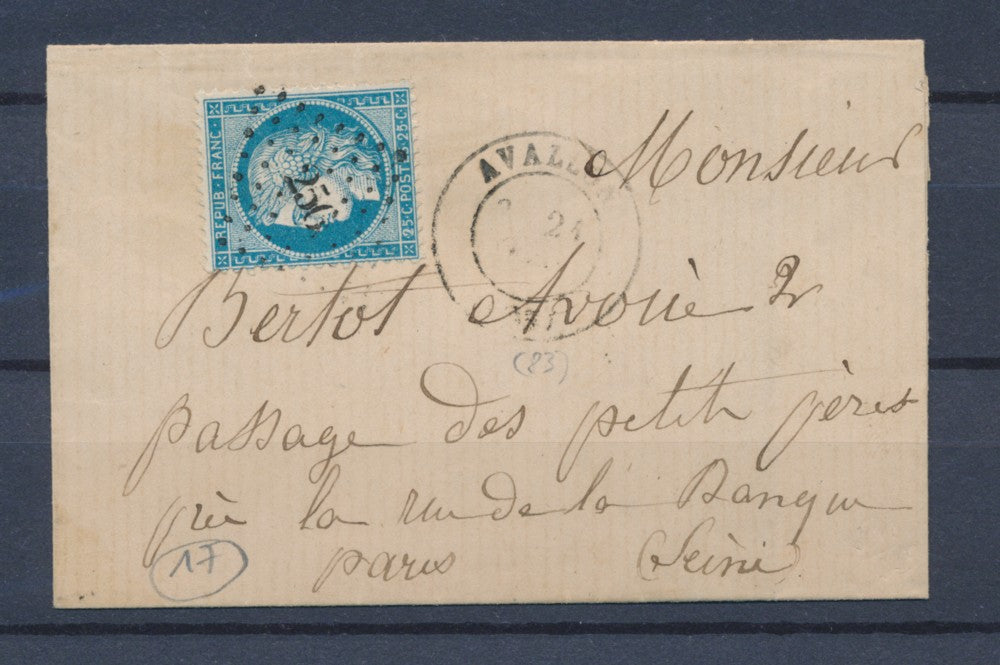 REPUB · FRANC ·
25 · C · POSTES · 25 · C ·
250
AVALLON
24
Monsieur
Bertot Avoué 2
passage des petits pères
près la rue de la Banque
paris (Seine)
(83)
17